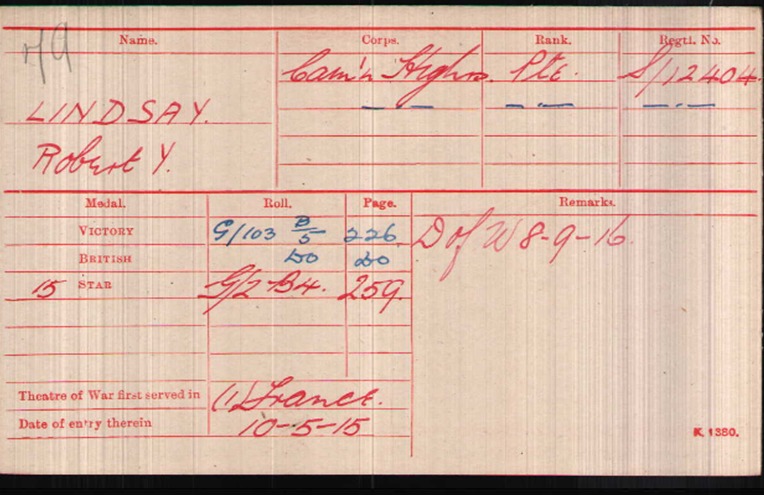 Name. Corps. Rank. Regtl. No.
Cam'n Highrs. Pte. S/12404.
LINDSAY.
Robert Y.
Medal. Roll. Page. Remarks.
VICTORY G/103 B/5 226. D of W 8-9-16.
BRITISH DO DO
15 STAR G/2-B4. 259.
Theatre of War first served in (1) France.
Date of entry therein 10-5-15
K 1380.